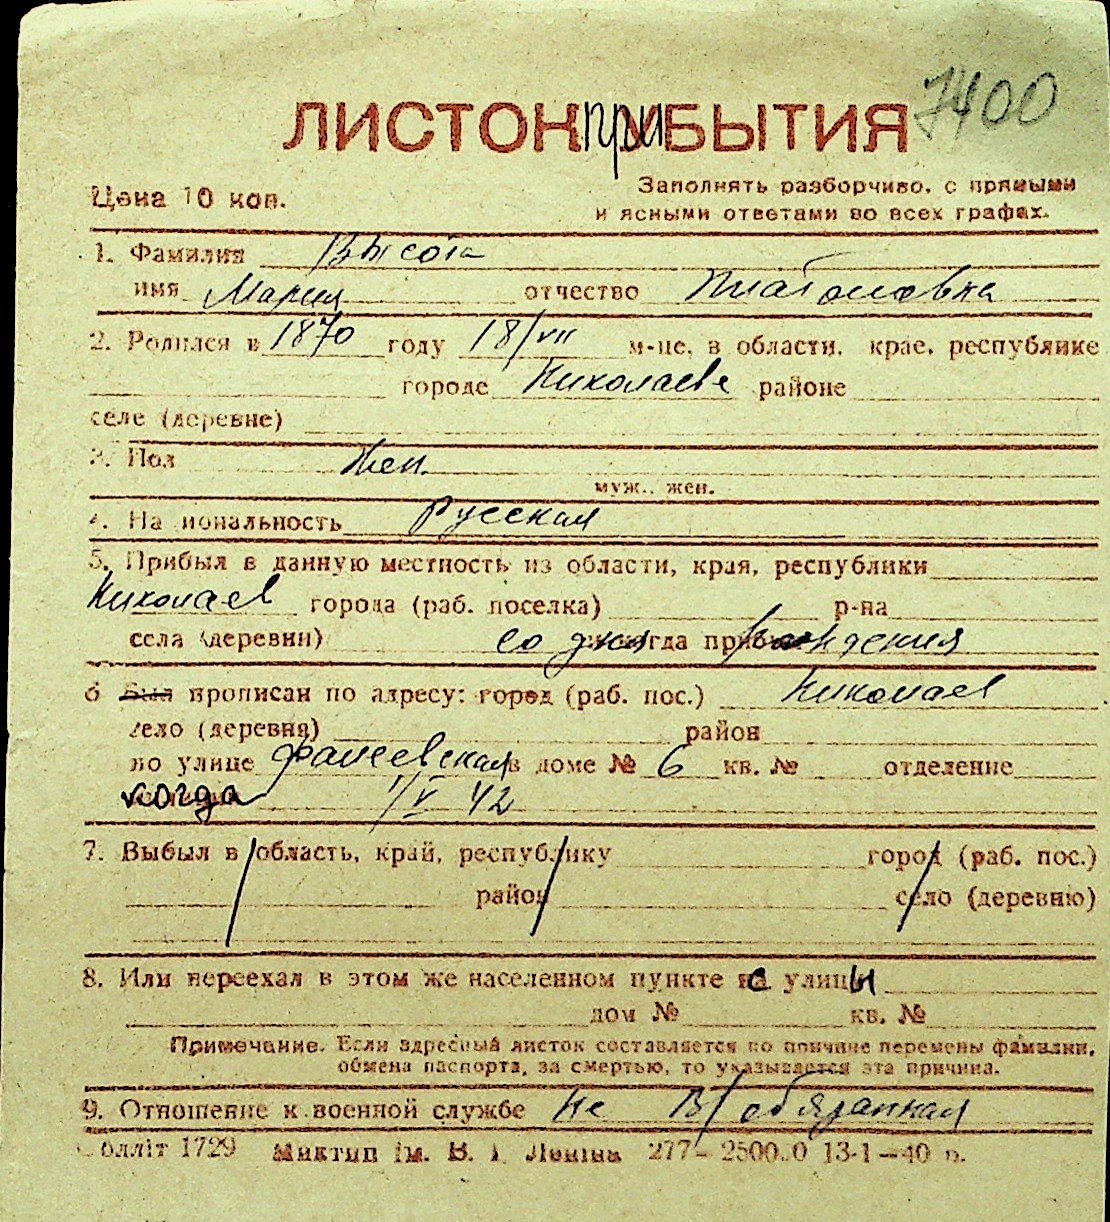 7400
ЛИСТОК ПРИБЫТИЯ
Цена 10 коп.
Заполнять разборчиво, с прямыми
и ясными ответами во всех графах.
1. Фамилия Высота
имя Мария отчество Платоновна
2. Родился в 1870 году 18/VII м-це, в области, крае, республике
городе Николаеве районе
селе (деревне)
3. Пол Жен.
муж., жен.
4. На иональность Русская
5. Прибыл в данную местность из области, края, республики
Николаев города (раб. поселка) р-на
села (деревни) со дня рождения
6 Был прописан по адресу: город (раб. пос.) Николаев
село (деревня) район
по улице Фалеевская в доме № 6 кв. № отделение
когда 1/V 42
7. Выбыл в область, край, республику город (раб. пос.)
район село (деревню)
8. Или переехал в этом же населенном пункте с улицы
дом № кв. №
Примечание. Если адресный листок составляется по причине перемены фамилии,
обмена паспорта, за смертью, то указывается эта причина.
9. Отношение к военной службе Не В/обязанная
блліт 1729 Миктип ім. В. І Леніна 277– 2500.0 13-1–40 р.